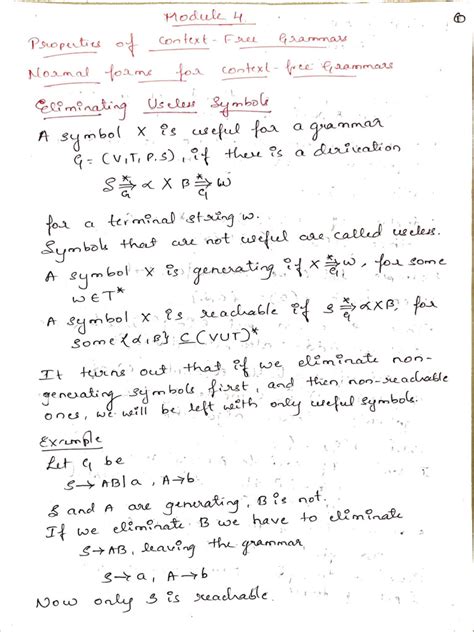 Module 4
①
Properties of Context-Free Grammars
Normal forms for context-free Grammars
Eliminating Useless Symbols
A symbol X is useful for a grammar
G = (V,T,P,S), if there is a derivation
S ⇒*G α X B ⇒*G w
for a terminal string w.
Symbols that are not useful are called useless.
A symbol X is generating if X ⇒*G w, for some
w ∈ T*
A symbol X is reachable if S ⇒*G αXB, for
some {α,B} ⊆ (VUT)*
It turns out that if we eliminate non-
generating symbols first, and then non-reachable
ones, we will be left with only useful symbols.
Example
Let G be
S→AB|a, A→b
S and A are generating, B is not.
If we eliminate B we have to eliminate
S→AB, leaving the grammar
S→a, A→b
Now only S is reachable.